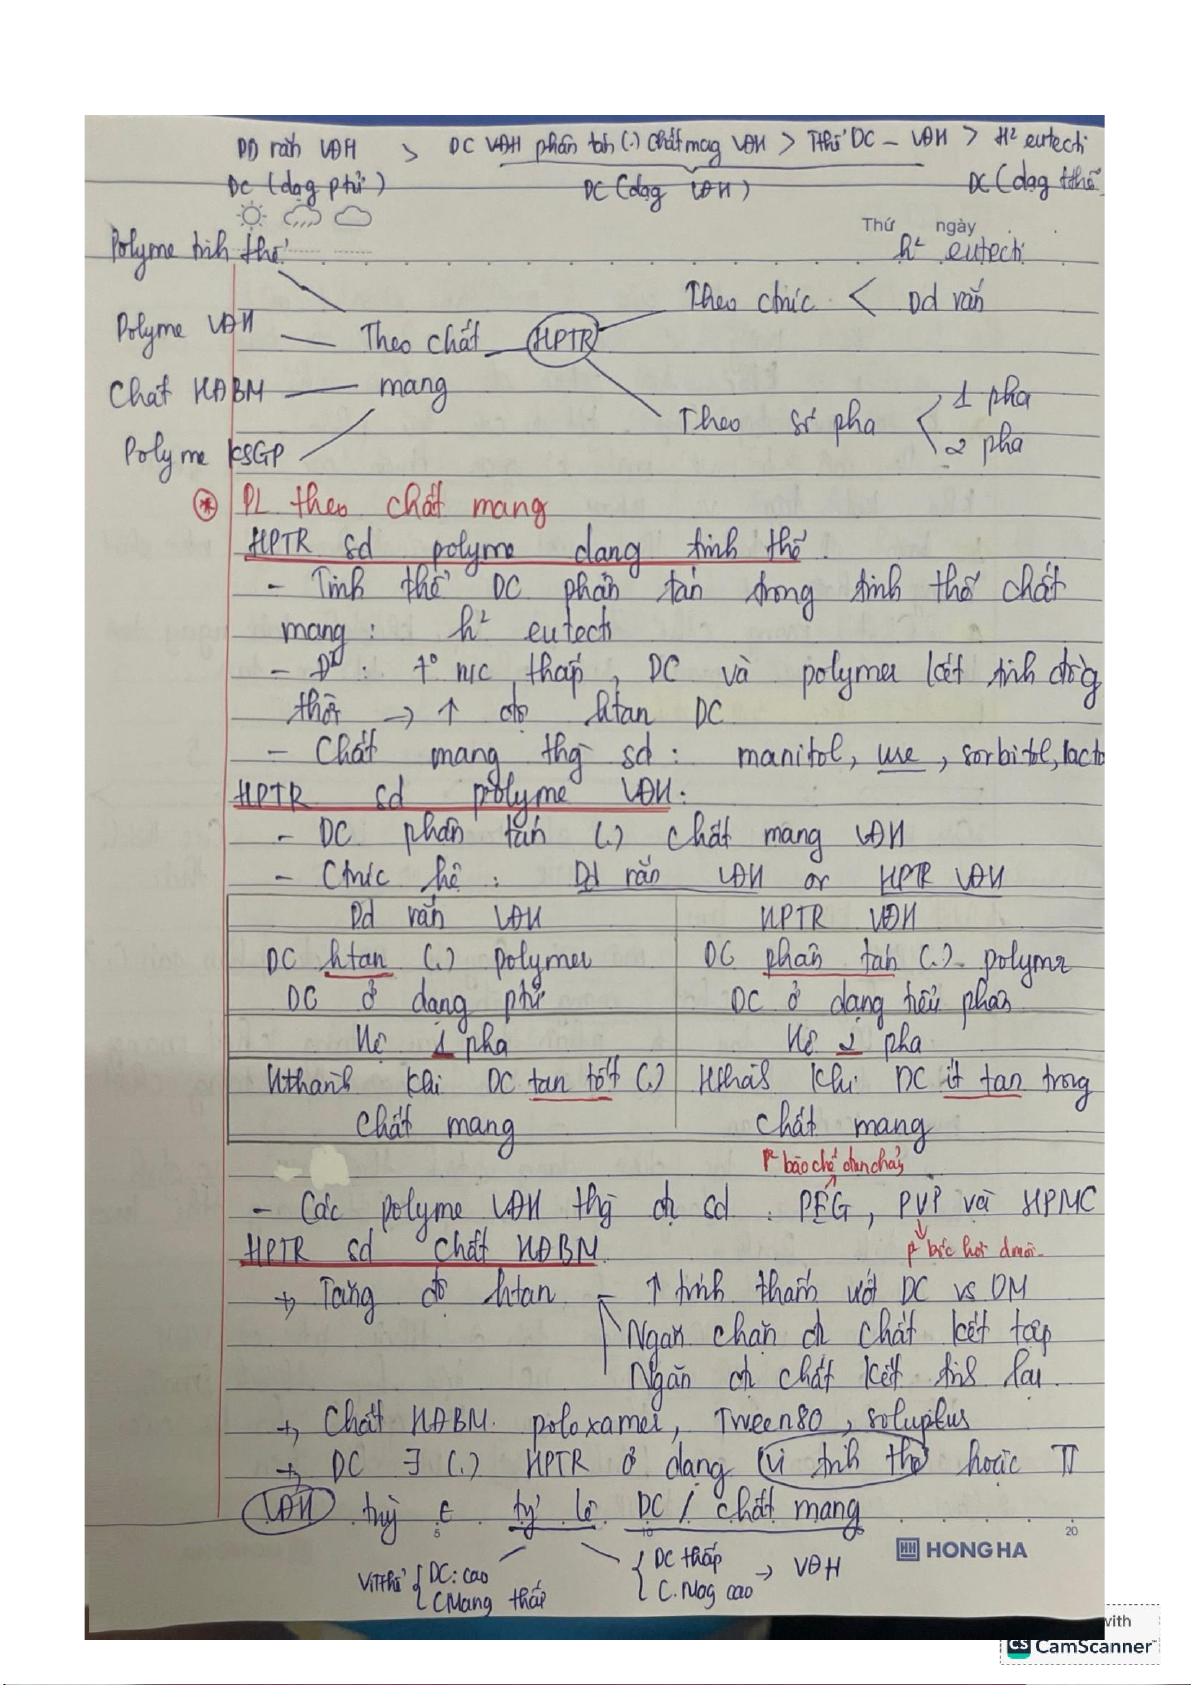 DD rắn VĐH > DC VĐH phân tán (.) chất mag VĐH > Tthể DC - VĐH > H² eutecti
DC (dạng ptử) DC (dạg VĐH) DC (dạg tthể
Thứ ngày
Polyme tinh thể h² eutecti
Theo ctrúc < Dd rắn
Polyme VĐH Theo chất HPTR
Chất HĐBM mang 1 pha
Theo số pha
Polyme KSGP 2 pha
* PL theo chất mang
HPTR sd polyme dạng tinh thể :
- Tinh thể DC phân tán trong tinh thể chất
mang : h² eutecti
- Đ² : t° n/c thấp, DC và polymer kết tinh đồg
thời → ↑ độ htan DC
- Chất mang thg sd : manitol, ure, sorbitol, lacto
HPTR sd polyme VĐH :
- DC phân tán (.) chất mang VĐH
- Ctrúc hệ : Dd rắn VĐH or HPTR VĐH
Dd rắn VĐH HPTR VĐH
DC htan (.) polymer DC phân tán (.) polyme
DC ở dạng ptử DC ở dạng tiểu phân
Hệ 1 pha Hệ 2 pha
Hthành khi DC tan tốt (.) Hthàh khi DC ít tan trong
chất mang chất mang
P² bào chế đun chảy
- Các polyme VĐH thg đc sd : PEG, PVP và HPMC
HPTR sd chất HĐBM P² bốc hơi dmôi
→ Tăng độ htan - ↑ tính thấm ướt DC vs DM
Ngăn chặn dc chất kết tập
Ngăn dc chất kết tih lại
→ Chất HĐBM. poloxamer, Tween80, soluplus
→ DC ∃ (.) HPTR ở dạng vi tinh thể hoặc TT
VĐH tuỳ t tỷ lệ DC / chất mang
5 10 20
HH HONG HA
Vi Tthể { DC : cao { DC thấp → VĐH
CMang thấp C.Mag cao
with
CS CamScanner